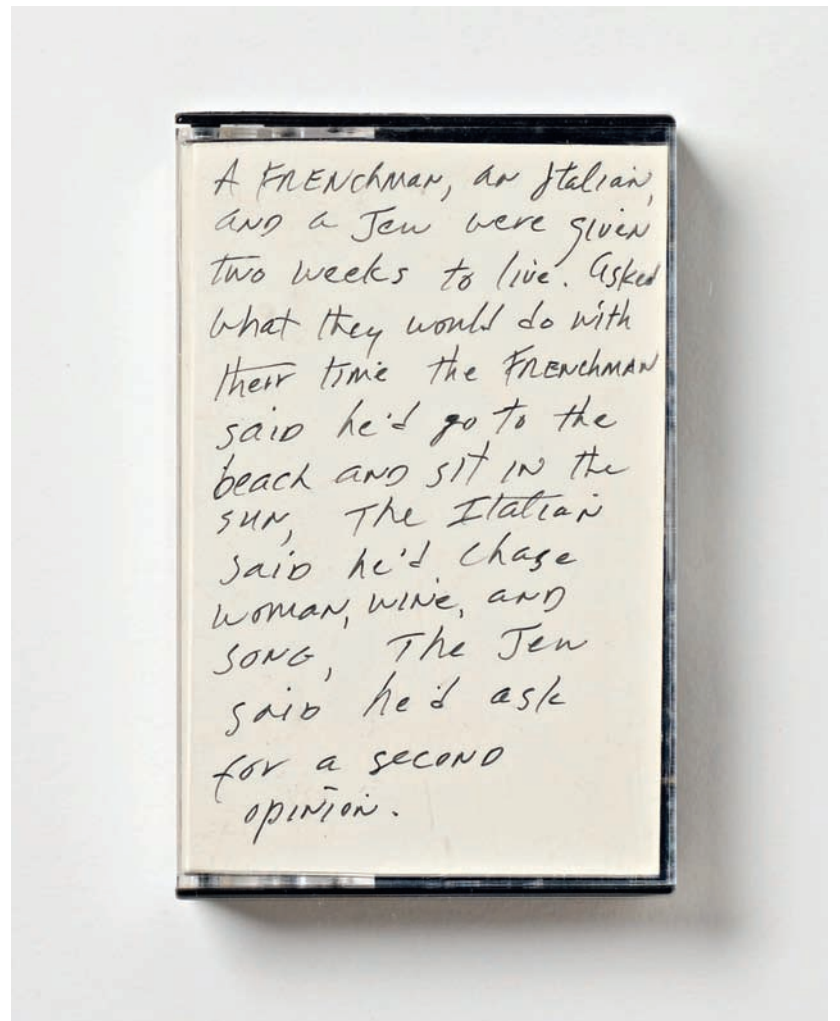 A FRENChMAN, an Italian,
AND a Jew were given
two weeks to live. Asked
what they would do with
their time the FRENchMAN
said he'd go to the
beach AND sit IN the
SUN, The Italian
said he'd chase
woman, wine, and
SONG, The Jew
said he'd ask
for a second
opinion.